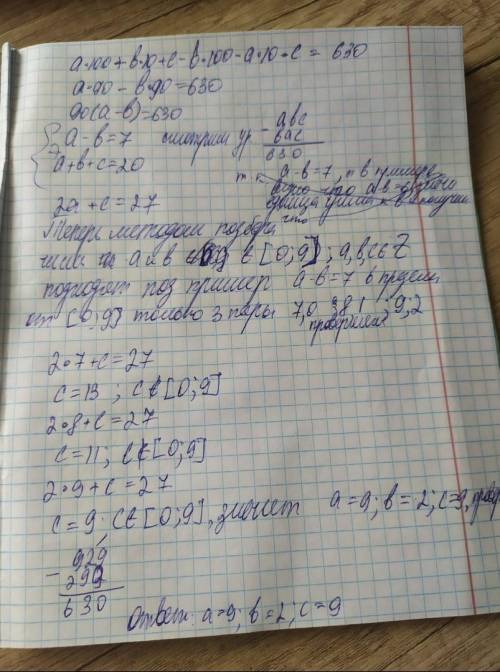 a·100+b·10+c-b·100-a·10-c = 630
a·90-b·90=630
90(a-b)=630
a-b=7 смотрим ур
a+b+c=20
- abc
bac
630
a-b=7, и в примере
2a+c=27
Теперь методом подбора
что a и b ∈ [0;9]; a,b,c∈Z
подходят под пример a-b=7 в пределе
от [0;9] только 3 пары 7,0 8,1 9;2
проверяем
2·7+c=27
c=13; c∉[0;9]
2·8+c=27
c=11; c∉[0;9]
2·9+c=27
c=9 c∈[0;9], значит a=9; b=2; c=9,
- 929
299
630
Ответ: a=9; b=2; c=9